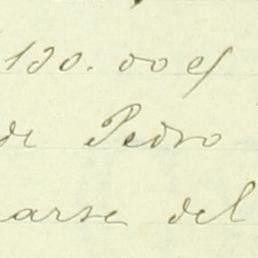 130.00 c/
de Pedro
arse del